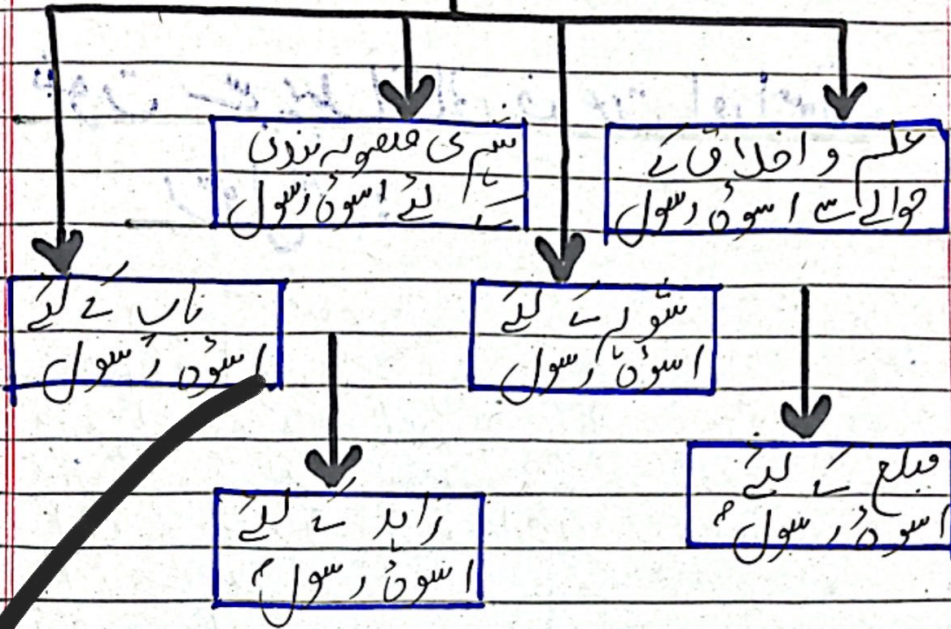 علم و اخلاق کے
حوالے سے اسوۂ رسول
شہری منصوبہ بندی
کے لئے اسوۂ رسول
شوہر کے لیے
اسوۂ رسول
باپ کے لیے
اسوۂ رسول
مبلغ کے لیے
اسوۂ رسولؐ
زاہد کے لیے
اسوۂ رسولؐ